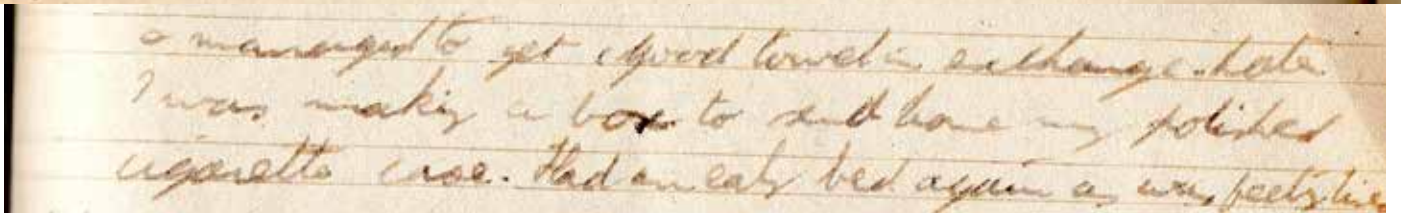 & managed to get a good towel in exchange. Later
I was making a box to send home my polished
cigarette case. Had an early bed again as was feeling tired